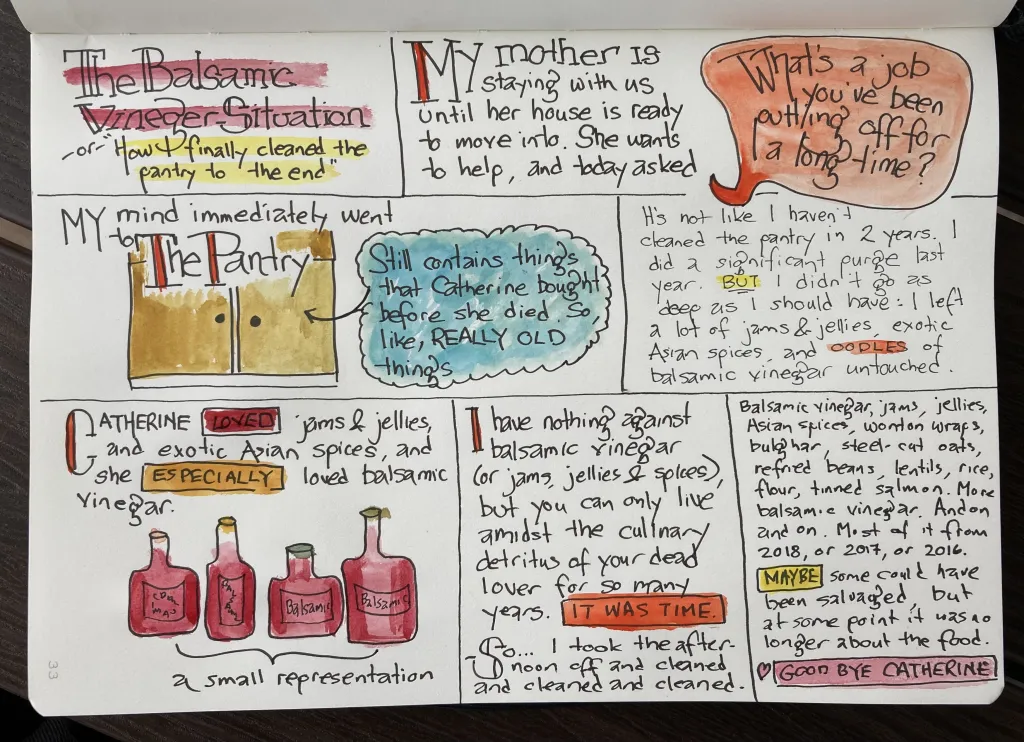 The Balsamic
Vineger Situation
-or- "How I finally cleaned the
pantry to "the end"
MY mother is
staying with us
until her house is ready
to move into. She wants
to help, and today asked
What's a job
you've been
putting off for
a long time?
MY mind immediately went
to
The Pantry
Still contains things
that Catherine bought
before she died. So
like, REALLY OLD
things
It's not like I haven't
cleaned the pantry in 2 years. I
did a significant purge last
year. BUT I didn't go as
deep as I should have: I left
a lot of jams & jellies, exotic
Asian spices, and OODLES of
balsamic vinegar untouched.
CATHERINE LOVED jams & jellies,
and exotic Asian spices, and
she ESPECIALLY loved balsamic
vinegar.
Balsamic
Balsamic
a small representation
I have nothing against
balsamic vinegar
(or jams, jellies & spices),
but you can only live
amidst the culinary
detritus of your dead
lover for so many
years. IT WAS TIME.
So... I took the after-
noon off and cleaned
and cleaned and cleaned.
Balsamic vinegar, jams, jellies,
Asian spices, wonton wraps,
bulghar, steel-cut oats,
refried beans, lentils, rice,
flour, tinned salmon. More
balsamic vinegar. And on
and on. Most of it from
2018, or 2017, or 2016.
MAYBE some could have
been salvaged, but
at some point it was no
longer about the food.
GOOD BYE CATHERINE
33